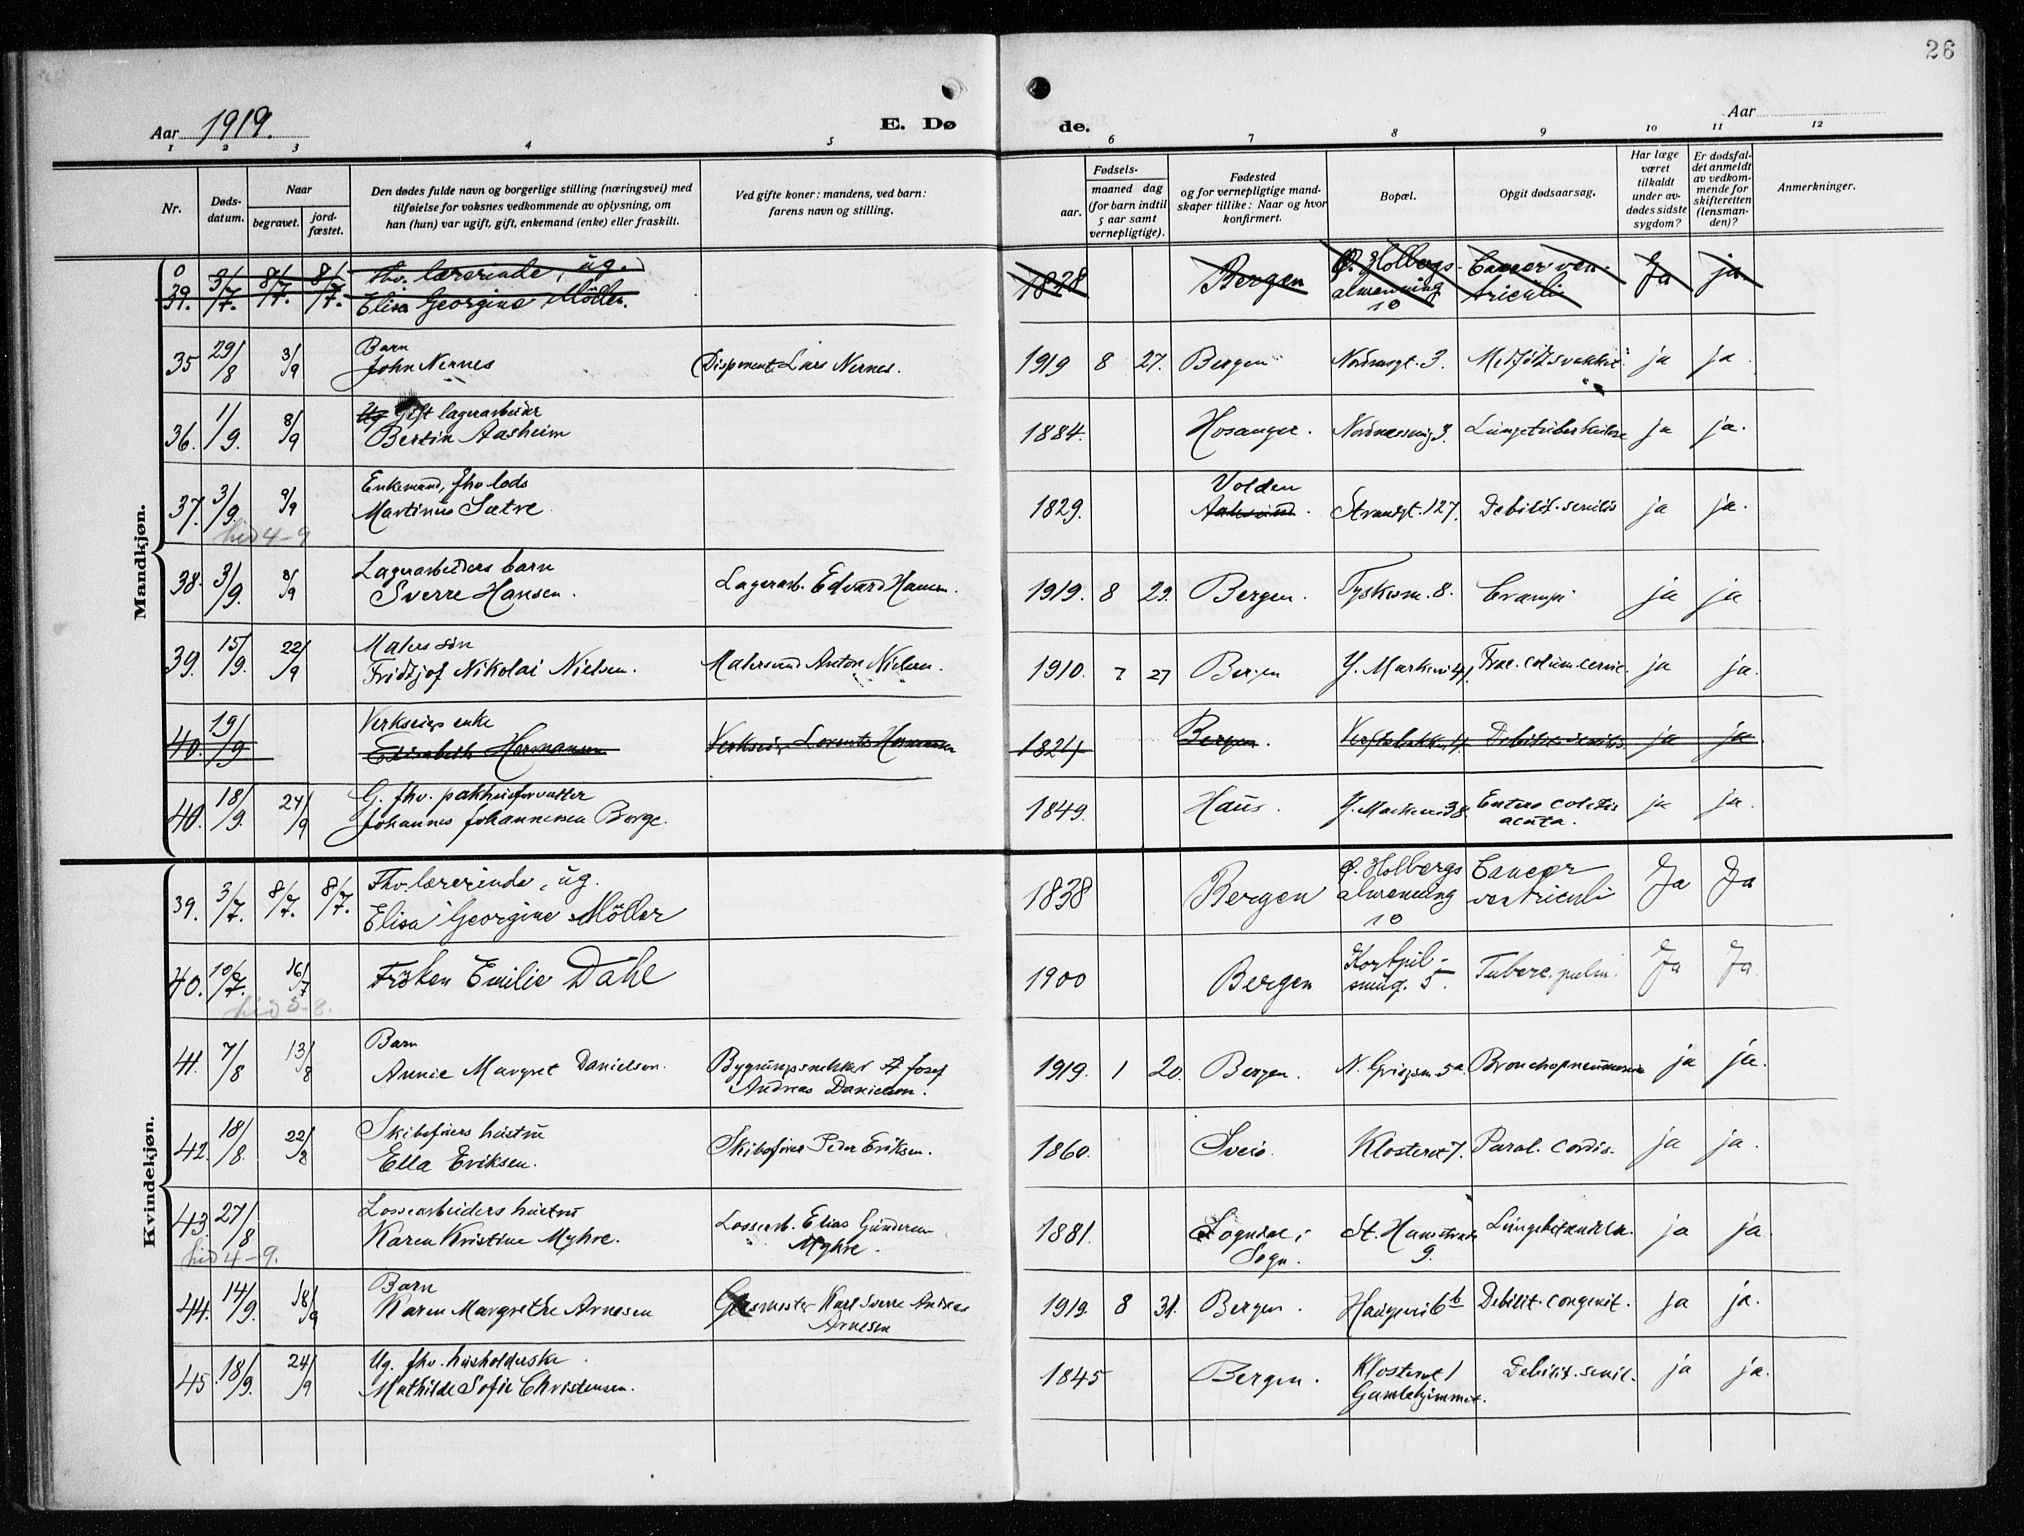 26
Aar 1919.
E. Dø de.
Aar
1 2 3 4 5 6 7 8 9 10 11 12
Nr.
Døds-
datum.
Naar
begravet.
jord-
fæstet.
Den dødes fulde navn og borgerlige stilling (næringsvei) med
tilføielse for voksnes vedkommende av oplysning, om
han (hun) var ugift, gift, enkemand (enke) eller fraskilt.
Ved gifte koner: mandens, ved barn:
farens navn og stilling.
Fødsels-
aar.
maaned dag
(for barn indtil
5 aar samt
vernepligtige).
Fødested
og for vernepligtige mand-
skaper tillike: Naar og hvor
konfirmert.
Bopæl.
Opgit dødsaarsag.
Har læge
været
tilkaldt
under av-
dødes sidste
sygdom?
Er dødsfal-
det anmeldt
av vedkom-
mende for
skifteretten
(lensman-
den)?
Anmerkninger.
Mandkjøn.
0 3/ 8/ 8/ Fhv. lærerinde, ug. Ø. Holbergs- Cancer ven-
39. 7. 7. 7. Elisa Georgine Möller. 1828 Bergen almenning triculi Ja ja
10
Barn
35 29/8 3/9 John Nernes Disponent Lars Nernes. 1919 8 27. Bergen Nordnesgt. 3. Medfödt svakhet ja ja
Ug Gift lagerarbeider
36. 1/9. 8/9 Bertin Aasheim 1884. Hosanger. Nordnessmug 3. Lungetuberkulose ja ja.
Enkemand, fhv lods Volden
37. 3/9. 9/9 Martinus Sætre 1829. Aalesund. Strandgt. 127. Debilit. senilis ja ja.
hid 4-9
Lagerarbeiders barn
38. 3/9. 8/9 Sverre Hansen. Lagerarb. Edvard Hansen. 1919. 8 29. Bergen. Tyskesm. 8. Crampi ja ja
Malers sön
39. 15/9. 22/9 Fridtjof Nikolai Nielsen. Malersvend Anton Nielsen. 1910. 7 27 Bergen Y. Markevei 41. Frac. colum. cervic. ja ja.
Verkseiers enke
40. 19/9 Elisabeth Hermansen Verkseier Lorentz Hermansen 1824 Bergen. Verftsbakken 4. Debilitas senilis ja ja.
G. fhv. pakhusforvalter
40. 18/9. 24/9 Johannes Johannesen Borge. 1849. Haus. Y. Markevei 38. Entero colitis ja ja.
acuta.
Kvindekjøn.
Fhv. lærerinde, ug. Ø. Holbergs Cancer
39. 3/7. 8/7. 8/7. Elisa Georgine Möller 1838 Bergen almenning ventriculi Ja Ja
10
Kortpil-
40. 10/7. 16/7 Fröken Emilie Dahl 1900 Bergen smug. 5. Tuberc. pulm. Ja Ja.
hid 5-8.
Barn
41. 7/8 13/8 Annie Margret Danielsen. Bygningssnekker Josef 1919. 1 20. Bergen. N. Griegsm. 5a. Bronchopneumonia ja ja.
Andreas Danielsen.
Skibsförers hustru
42. 18/8. 22/8 Ella Eriksen. Skibsförer Peder Eriksen. 1860. Sveio. Klosteret 7. Paral. cordis. ja ja.
Lossearbeiders hustru
43. 27/8 Karen Kristine Myhre. Lossearb. Elias Gundersen 1881. Sogndal i St. Hansstræde Lungebetændelse. ja ja.
hid 4-9. Myhre. Sogn. 9.
Barn
44. 14/9. 18/9 Karen Margrethe Arnesen Karl Sverre Andreas 1919. 8 31. Bergen. Haugevei 6b Debilit. congenit. ja ja.
Arnesen
Ug. fhv. husholderske Klosteret 1
45. 18/9. 24/9 Mathilde Sofie Christensen. 1845 Bergen. Gamlehjemmet. Debilit. senil. ja ja.